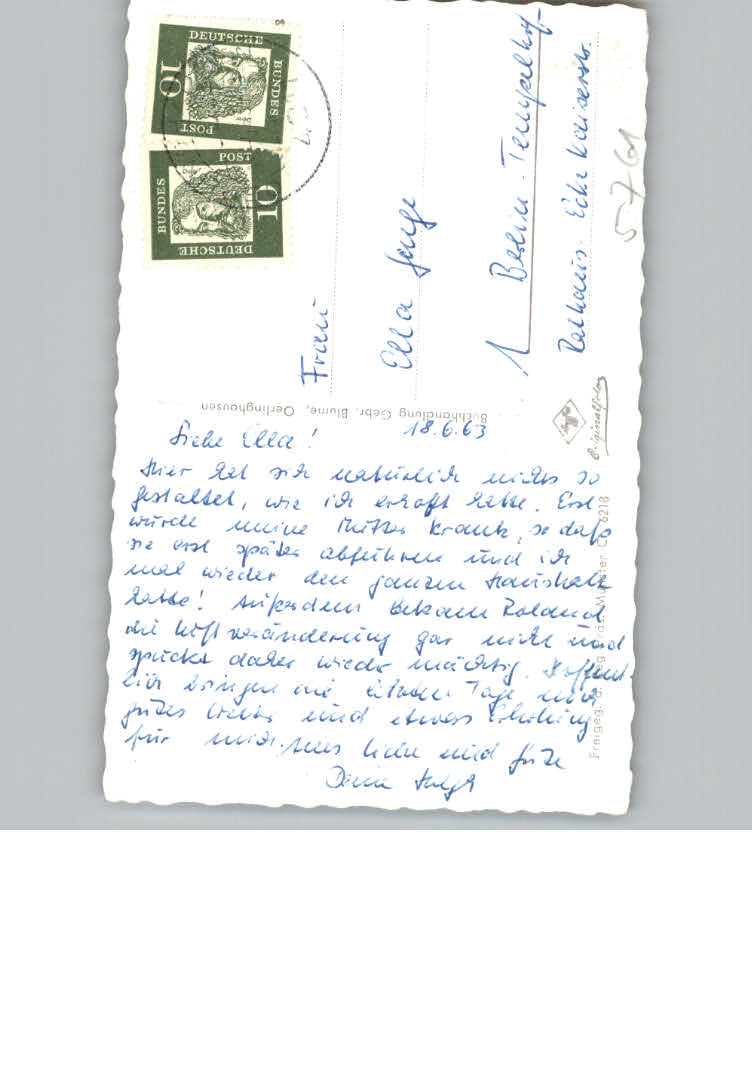 18.6.63
Liebe Ella!
Hier hat sich natürlich nichts so
gestaltet, wie ich erhofft hatte. Erst
wurde meine Mutter krank, so daß
sie erst später abfuhren und ich
mal wieder den ganzen Haushalt
hatte! Außerdem bekam Roland
die Luftveränderung gar nicht und
spuckt daher wieder mächtig. Hoffent-
lich bringen die Tage nur
gutes und etwas Erholung
für mich. Alles liebe und gute
Deine
Frau
Ella
1 Berlin-Tempelhof
Rathaus- Ecke Kaiserstr.
5761
DEUTSCHE
BUNDES
POST
10
Dürer
DEUTSCHE
BUNDES
POST
10
Dürer
Buchhandlung Gebr. Blume, Oerlinghausen
Agfa
Originalfoto
6218